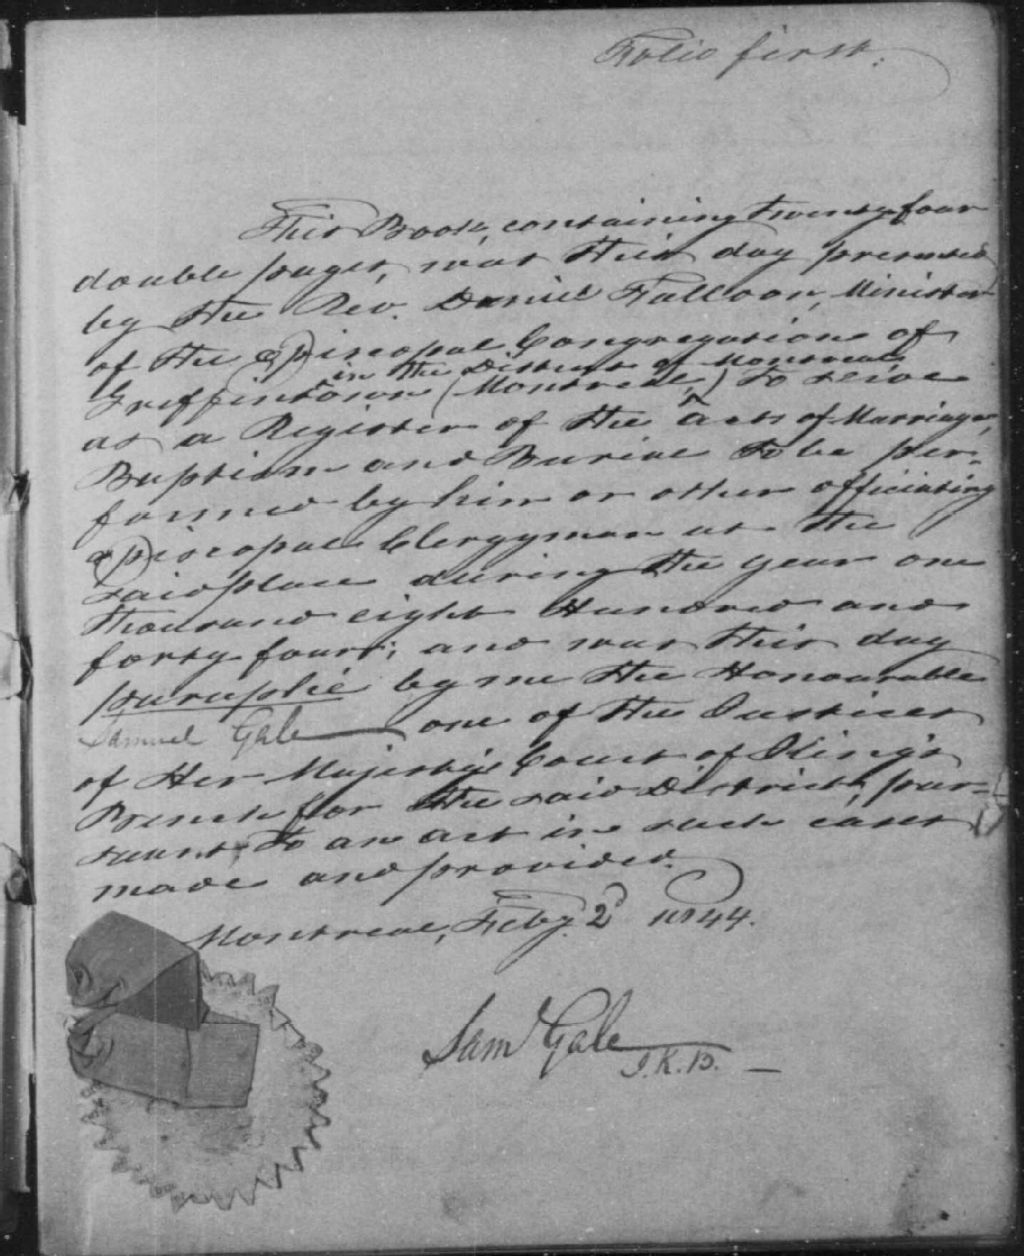 Folio first.
This Book, containing twenty four
double pages, was this day presented
by the Rev. Daniel Falloon, Minister
of the episcopal Congregations of
in the District of Montreal
Griffintown (Montreal,) to serve
as a Register of the acts of Marriage,
Baptism and Burial to be per-
formed by him or other officiating
episcopal Clergyman at the
said place during the year one
thousand eight Hundred and
forty four; and was this day
paraphé by me the Honourable
Samuel Gale one of the Justices
of Her Majesty's Court of King's
Bench for the said District, pur-
suant to an act in such cases
made and provided.
Montreal, Feby. 2d 1844.
Saml Gale
J.K.B.